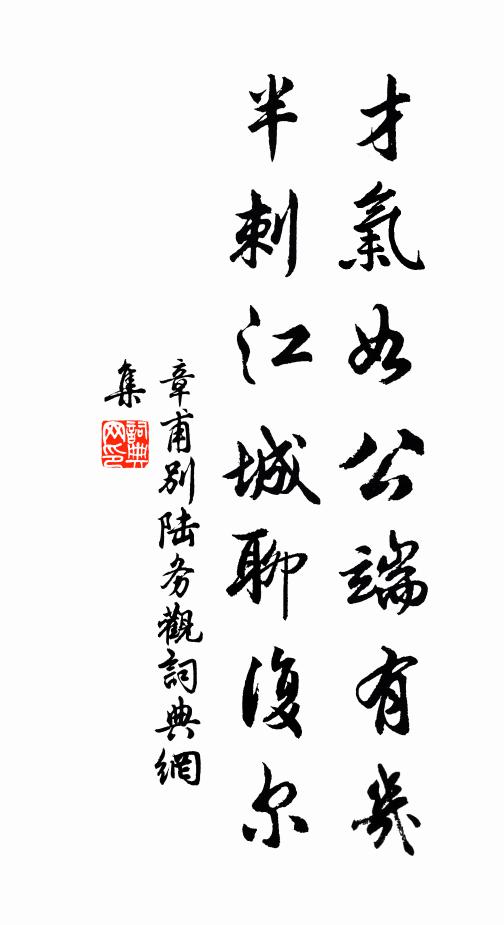 才氣如公端有幾
半刺江城聊復尔
章甫別陆务觀詞典網
集
詞典
网印